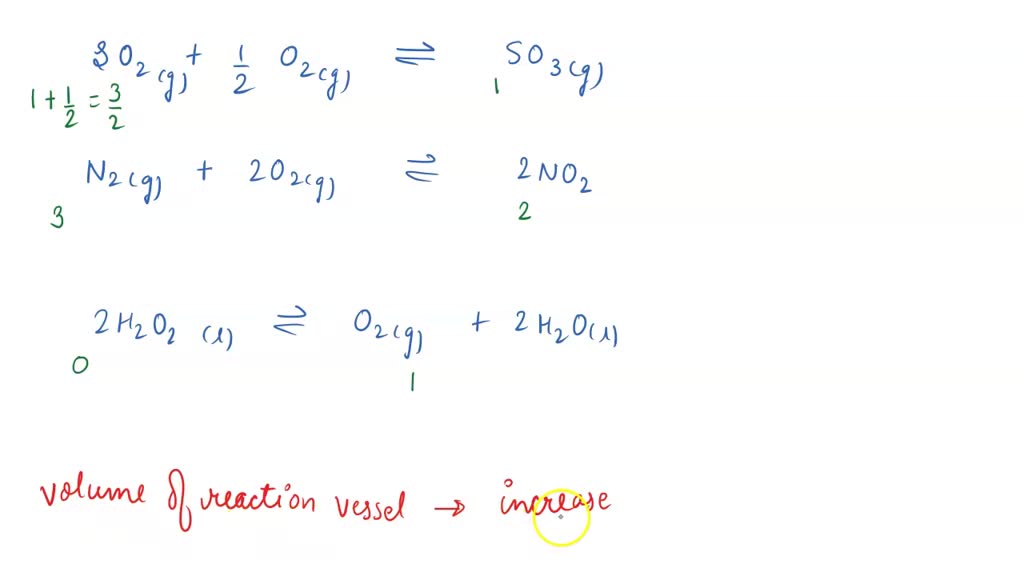 SO2(g) + 1/2 O2(g) ⇌ SO3(g)
1 + 1/2 = 3/2 1
N2(g) + 2O2(g) ⇌ 2NO2
3 2
2H2O2(l) ⇌ O2(g) + 2H2O(l)
0 1
volume of reaction vessel → increase